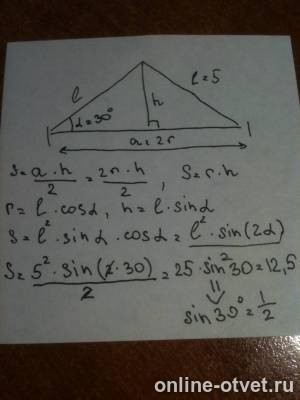 l
l=5
h
α=30°
a=2r
S=a·h/2=2r·h/2, S=r·h
r=l·cosα, h=l·sinα
S=l²·sinα·cosα=l²·sin(2α)
S=5²·sin(2·30)/2=25·sin²30=12,5
⇓
sin30°=1/2
online-otvet.ru